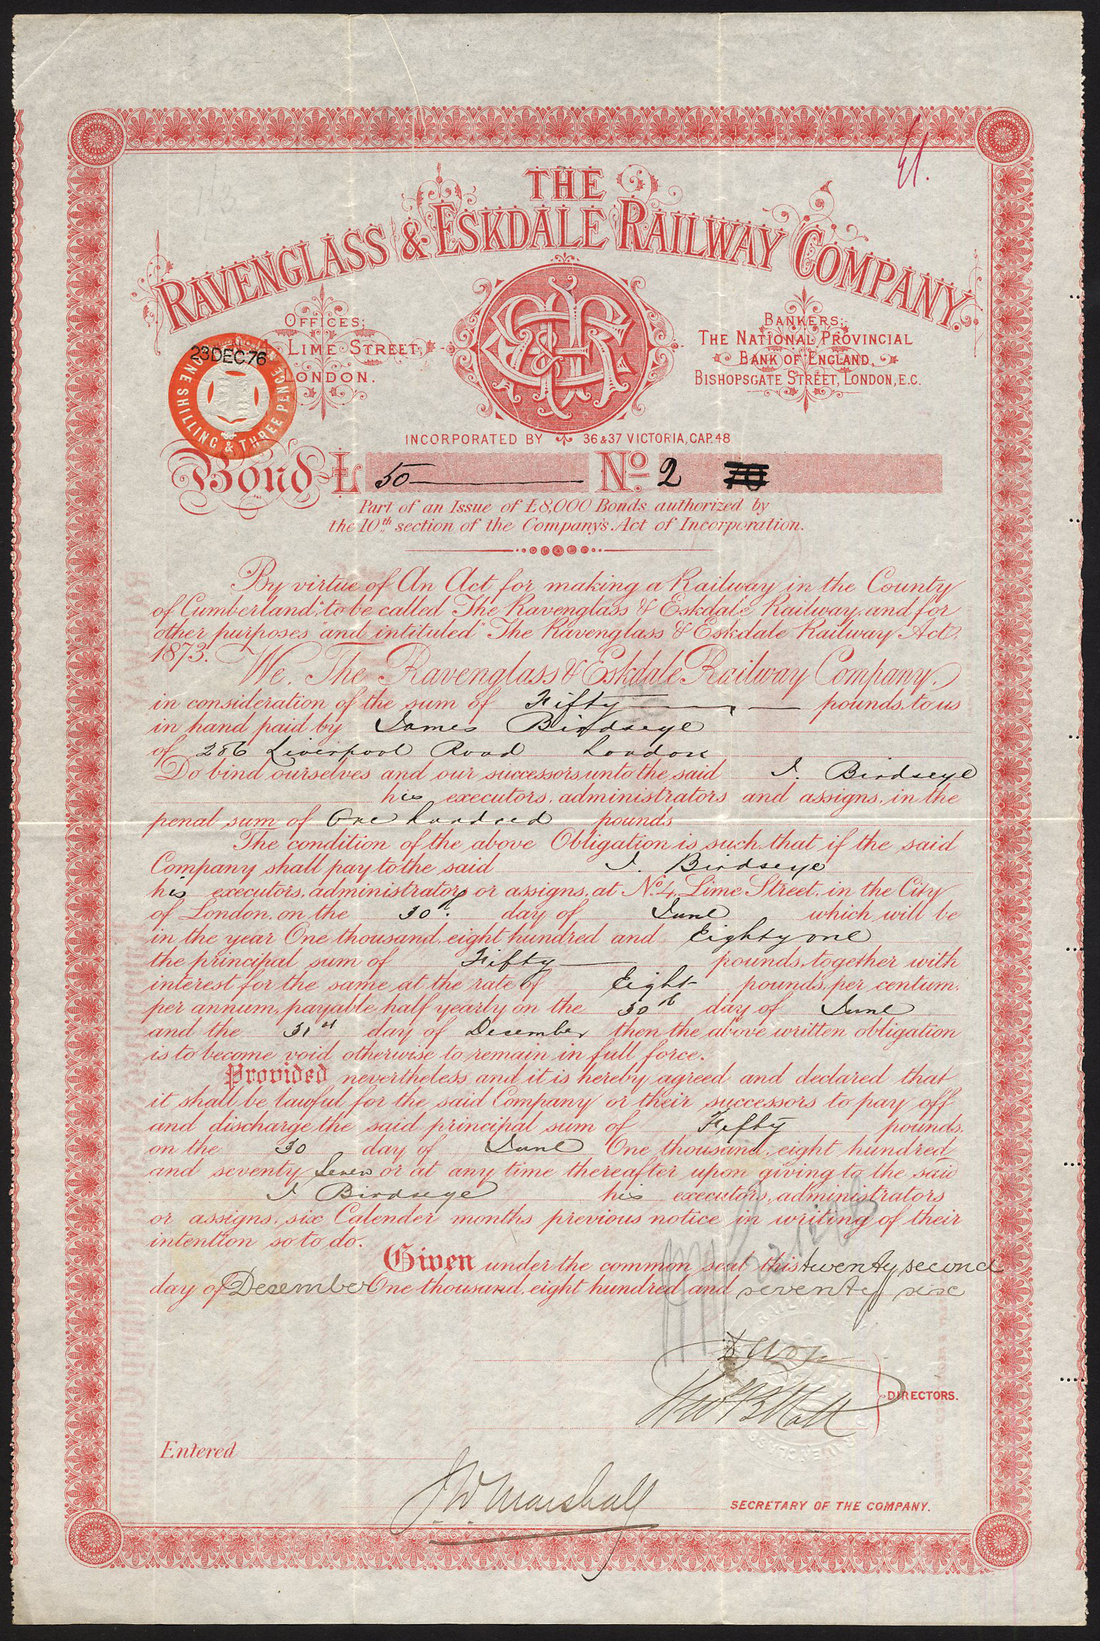 El.
THE
RAVENGLASS & ESKDALE RAILWAY COMPANY.
OFFICES;
LIME STREET,
LONDON.
BANKERS;
THE NATIONAL PROVINCIAL
BANK OF ENGLAND,
BISHOPSGATE STREET, LONDON, E.C.
23 DEC 76
ONE SHILLING & THREE PENCE
INCORPORATED BY 36 & 37 VICTORIA, CAP. 48
Bond £ 50 No. 2 70
Part of an Issue of £8,000 Bonds authorized by
the 10th section of the Company's Act of Incorporation.
By virtue of An Act for making a Railway in the County
of Cumberland, to be called The Ravenglass & Eskdale Railway, and for
other purposes and intituled "The Ravenglass & Eskdale Railway Act,
1873." We, The Ravenglass & Eskdale Railway Company,
in consideration of the sum of Fifty pounds, to us
in hand paid by James Birdseye
of 286 Liverpool Road London
Do bind ourselves and our successors unto the said J. Birdseye
his executors, administrators and assigns, in the
penal sum of One hundred pounds
The condition of the above Obligation is such, that if the said
Company shall pay to the said J. Birdseye
his executors, administrators or assigns, at No. 4, Lime Street, in the City
of London, on the 30. day of June which will be
in the year One thousand, eight hundred and Eighty one
the principal sum of Fifty pounds, together with
interest for the same at the rate of Eight pounds, per centum,
per annum, payable half yearly on the 30th day of June
and the 31st day of Desember then the above written obligation
is to become void otherwise to remain in full force.
Provided nevertheless, and it is hereby agreed and declared that
it shall be lawful for the said Company or their successors to pay off
and discharge the said principal sum of Fifty pounds,
on the 30 day of June One thousand, eight hundred
and seventy Seven or at any time thereafter upon giving to the said
J Birdseye his executors, administrators
or assigns, six Calender months previous notice in writing of their
intention so to do.
Given under the common seal this twenty second
day of Desember One thousand, eight hundred and seventy six
DIRECTORS.
Entered
J W Marshall
SECRETARY OF THE COMPANY.